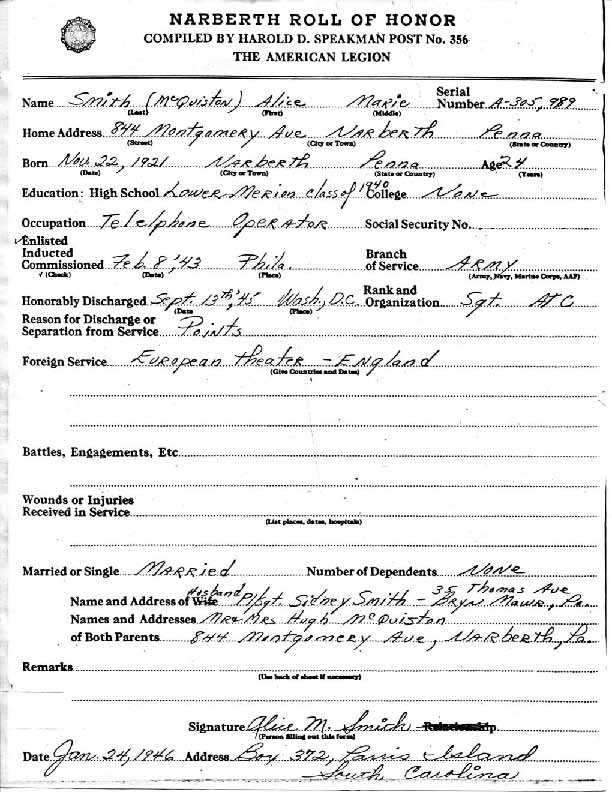 NARBERTH ROLL OF HONOR
COMPILED BY HAROLD D. SPEAKMAN POST No. 356
THE AMERICAN LEGION
Name Smith (McQuiston) Alice Marie Serial Number A-305,989
(Last) (First) (Middle)
Home Address 844 Montgomery Ave Narberth Penna
(Street) (City or Town) (State or Country)
Born Nov. 22, 1921 Narberth Penna Age 24
(Date) (City or Town) (State or Country) (Years)
Education: High School Lower Merion Class of 1940 College None
Occupation Telelphone Operator Social Security No.
✓Enlisted
Inducted
Commissioned Feb. 8, '43 Phila. Branch of Service ARMY
√ (Check) (Date) (Place) (Army, Navy, Marine Corps, AAF)
Honorably Discharged Sept. 13th, '45 Wash, D.C. Rank and Organization Sgt ATC
(Date (Place)
Reason for Discharge or
Separation from Service Points
Foreign Service European Theater - England
(Give Countries and Dates)
Battles, Engagements, Etc
Wounds or Injuries
Received in Service
(List places, dates, hospitals)
Married or Single Married Number of Dependents None
Name and Address of Wife Husband Pl/Sgt. Sidney Smith - 35 Thomas Ave Bryn Mawr, Pa.
Names and Addresses Mr & Mrs Hugh McQuiston
of Both Parents 844 Montgomery Ave, Narberth, Pa.
Remarks
(Use back of sheet if necessary)
Signature Alice M. Smith Relationship
(Person filling out this form)
Date Jan. 24, 1946 Address Box 372, Parris Island
South Carolina